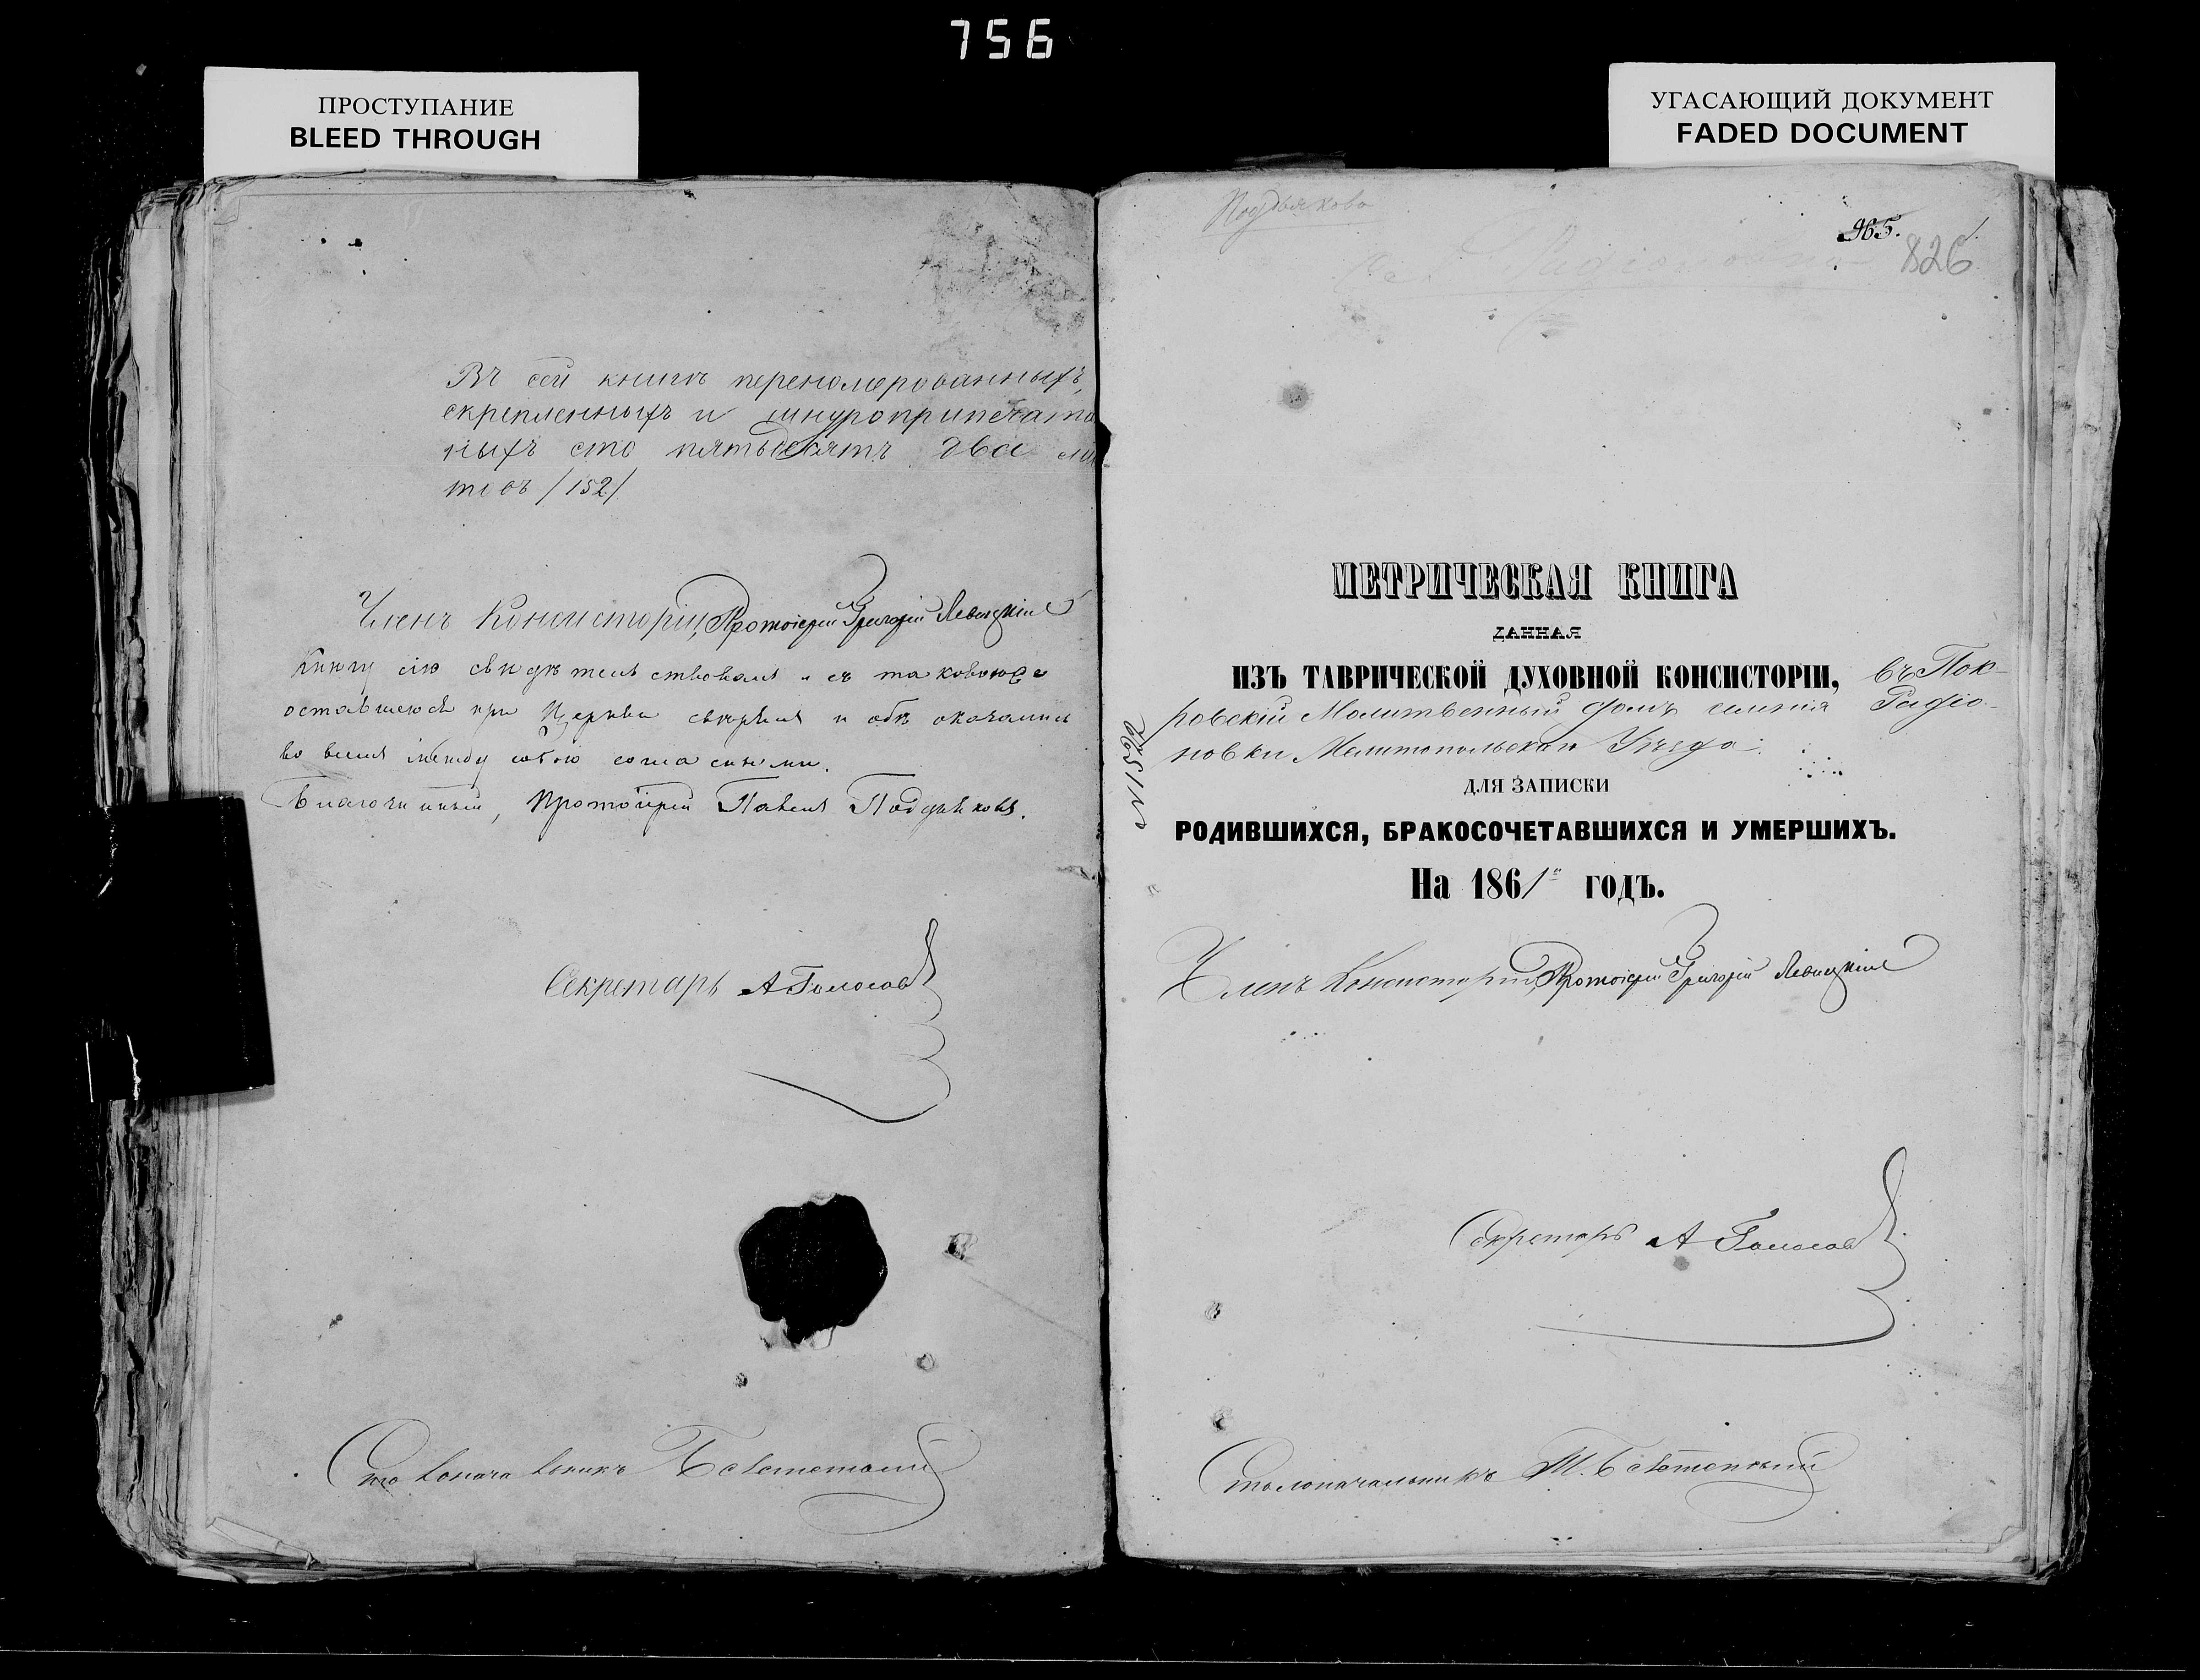 756
ПРОСТУПАНИЕ
BLEED THROUGH
УГАСАЮЩИЙ ДОКУМЕНТ
FADED DOCUMENT
Въ сей книгѣ перенумерованныхъ,
скрепленныхъ и шнуроприпечата
ныхъ сто пятьдесятъ два лис
товъ /152/
Членъ Консисторіи, Протоіерей Григорій Левицкій
Книгу сію свидѣтельствовалъ и съ таковою же
оставшеюся при Церкви свѣрялъ и обѣ оказались
во всемъ между собою согласными.
Благочинный, Протоіерей Павелъ Поддьяковъ.
Секретарь А Голосов
Столоначальникъ
Поддьякова
965.
826
МЕТРИЧЕСКАЯ КНИГА
ДАННАЯ
ИЗЪ ТАВРИЧЕСКОЙ ДУХОВНОЙ КОНСИСТОРІИ, въ Пок-
ровскій Молитвенный домъ селенія Радіо-
новки Мелитопольскаго Уѣзда.
ДЛЯ ЗАПИСКИ
РОДИВШИХСЯ, БРАКОСОЧЕТАВШИХСЯ И УМЕРШИХЪ.
На 1861й ГОДЪ.
Членъ Консисторіи, Протоіерей Григорій Левицкій
Секретарь А Голосов
Столоначальникъ